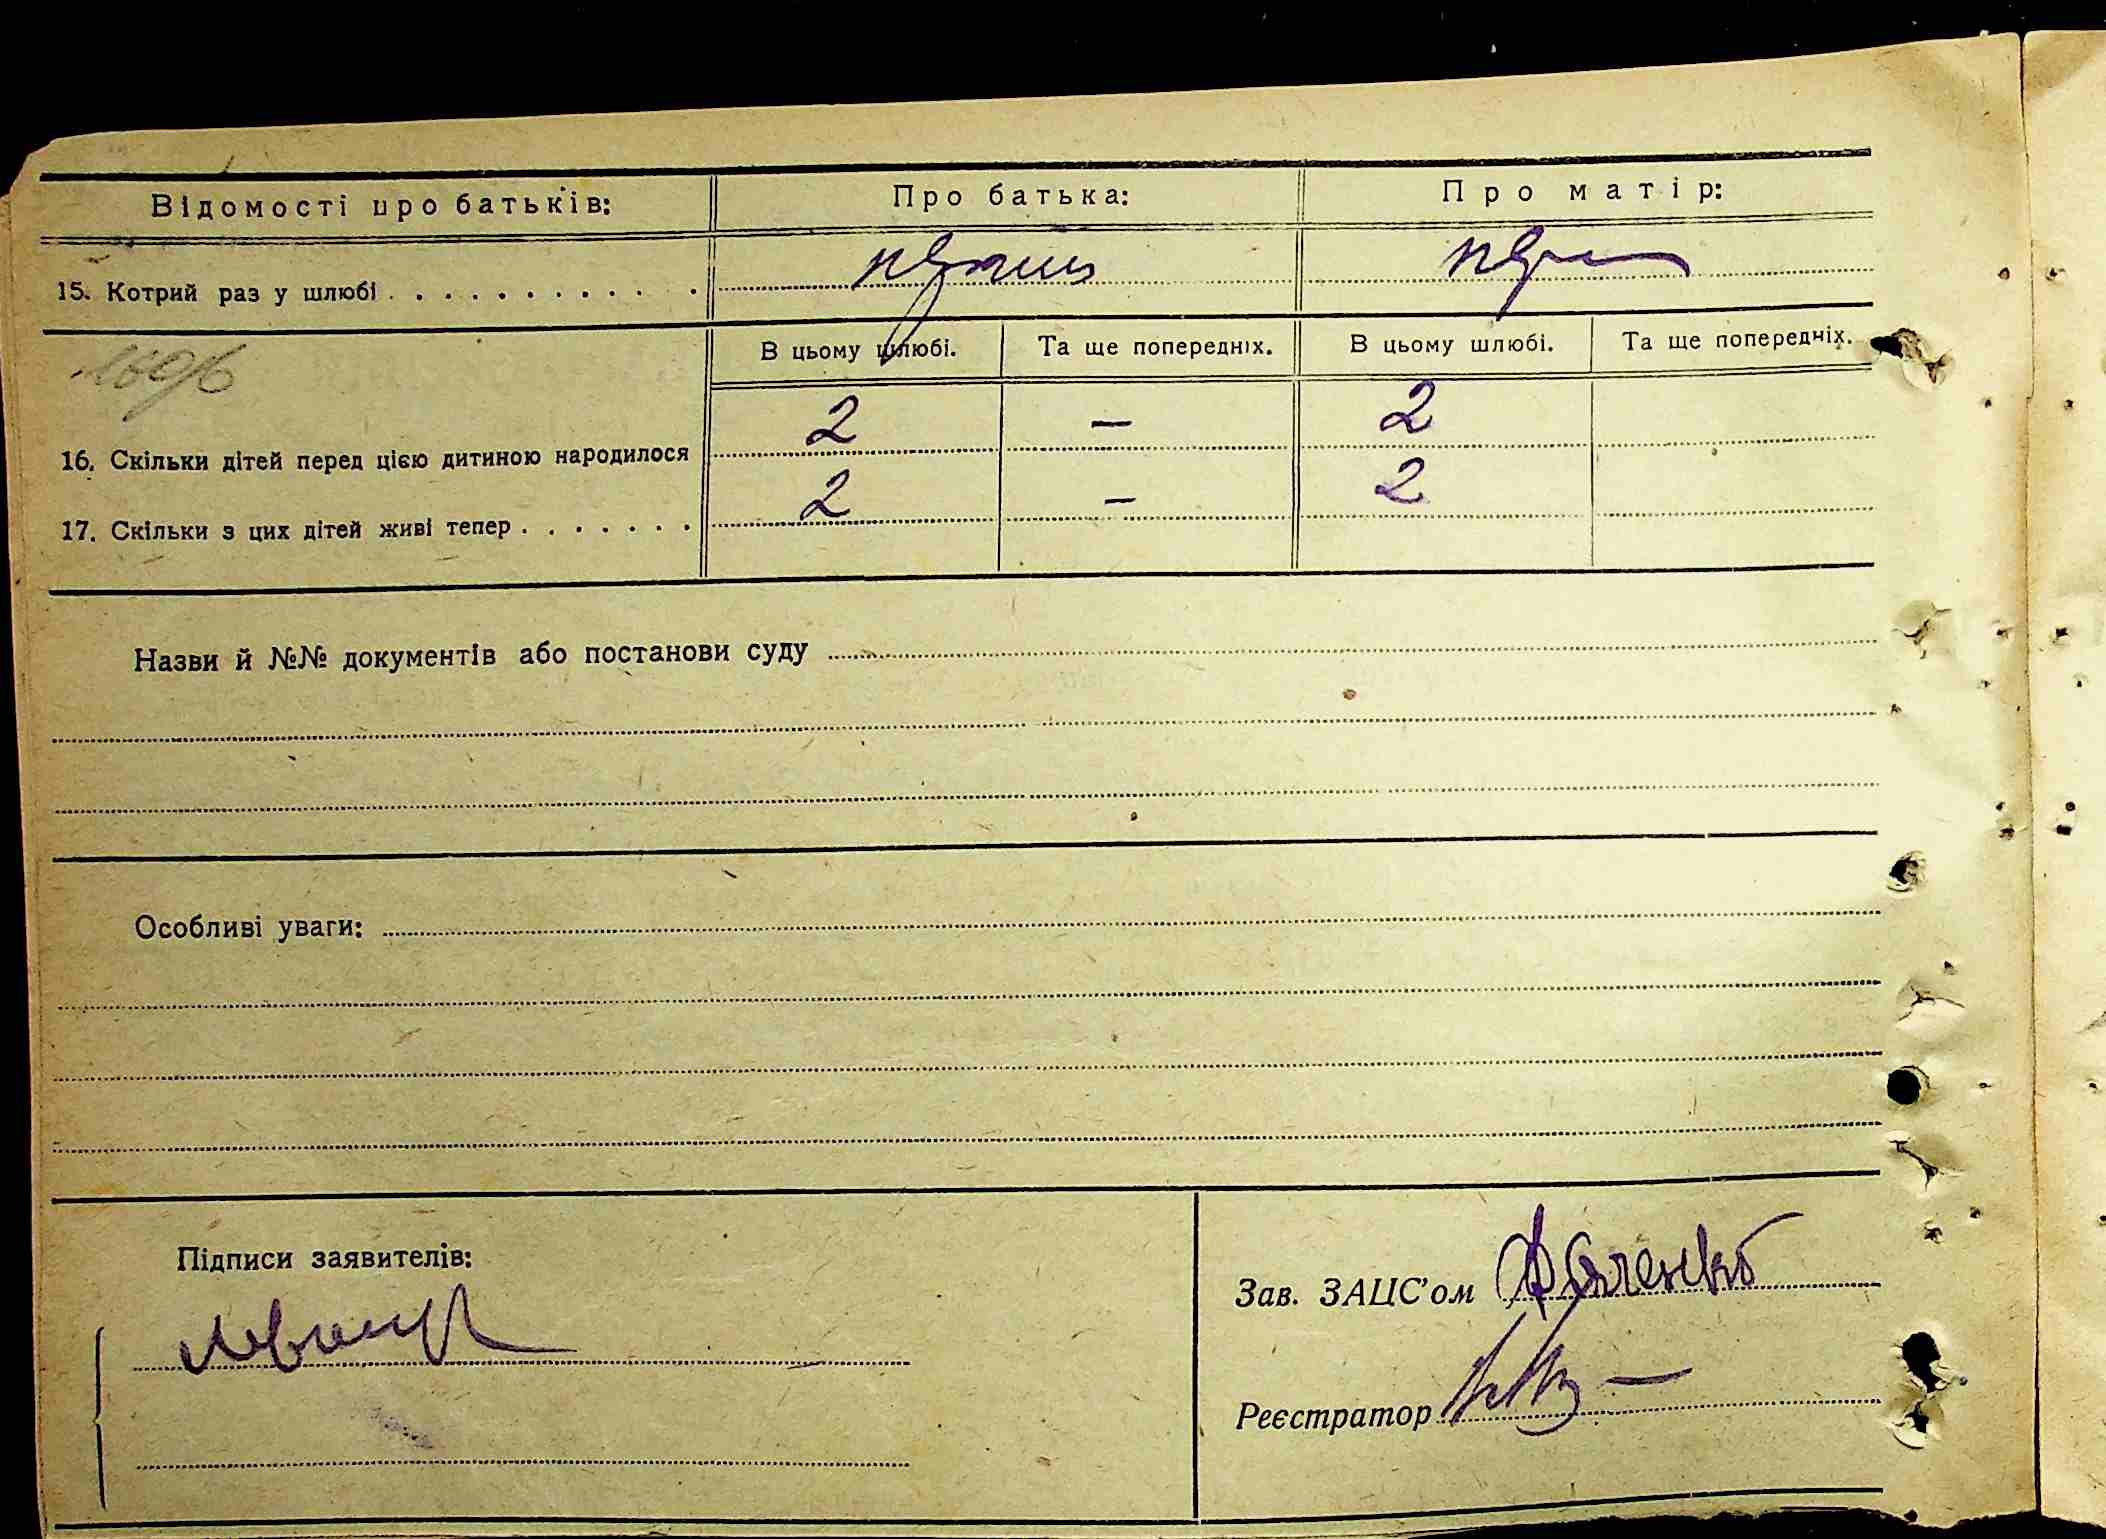 Відомості про батьків: Про батька: Про матір:
15. Котрий раз у шлюбі
В цьому шлюбі. Та ще попередніх. В цьому шлюбі. Та ще попередніх.
16. Скільки дітей перед цією дитиною народилося 2 — 2
17. Скільки з цих дітей живі тепер 2 — 2
Назви й №№ документів або постанови суду
Особливі уваги:
Підписи заявителів:
Зав. ЗАЦС'ом
Реєстратор